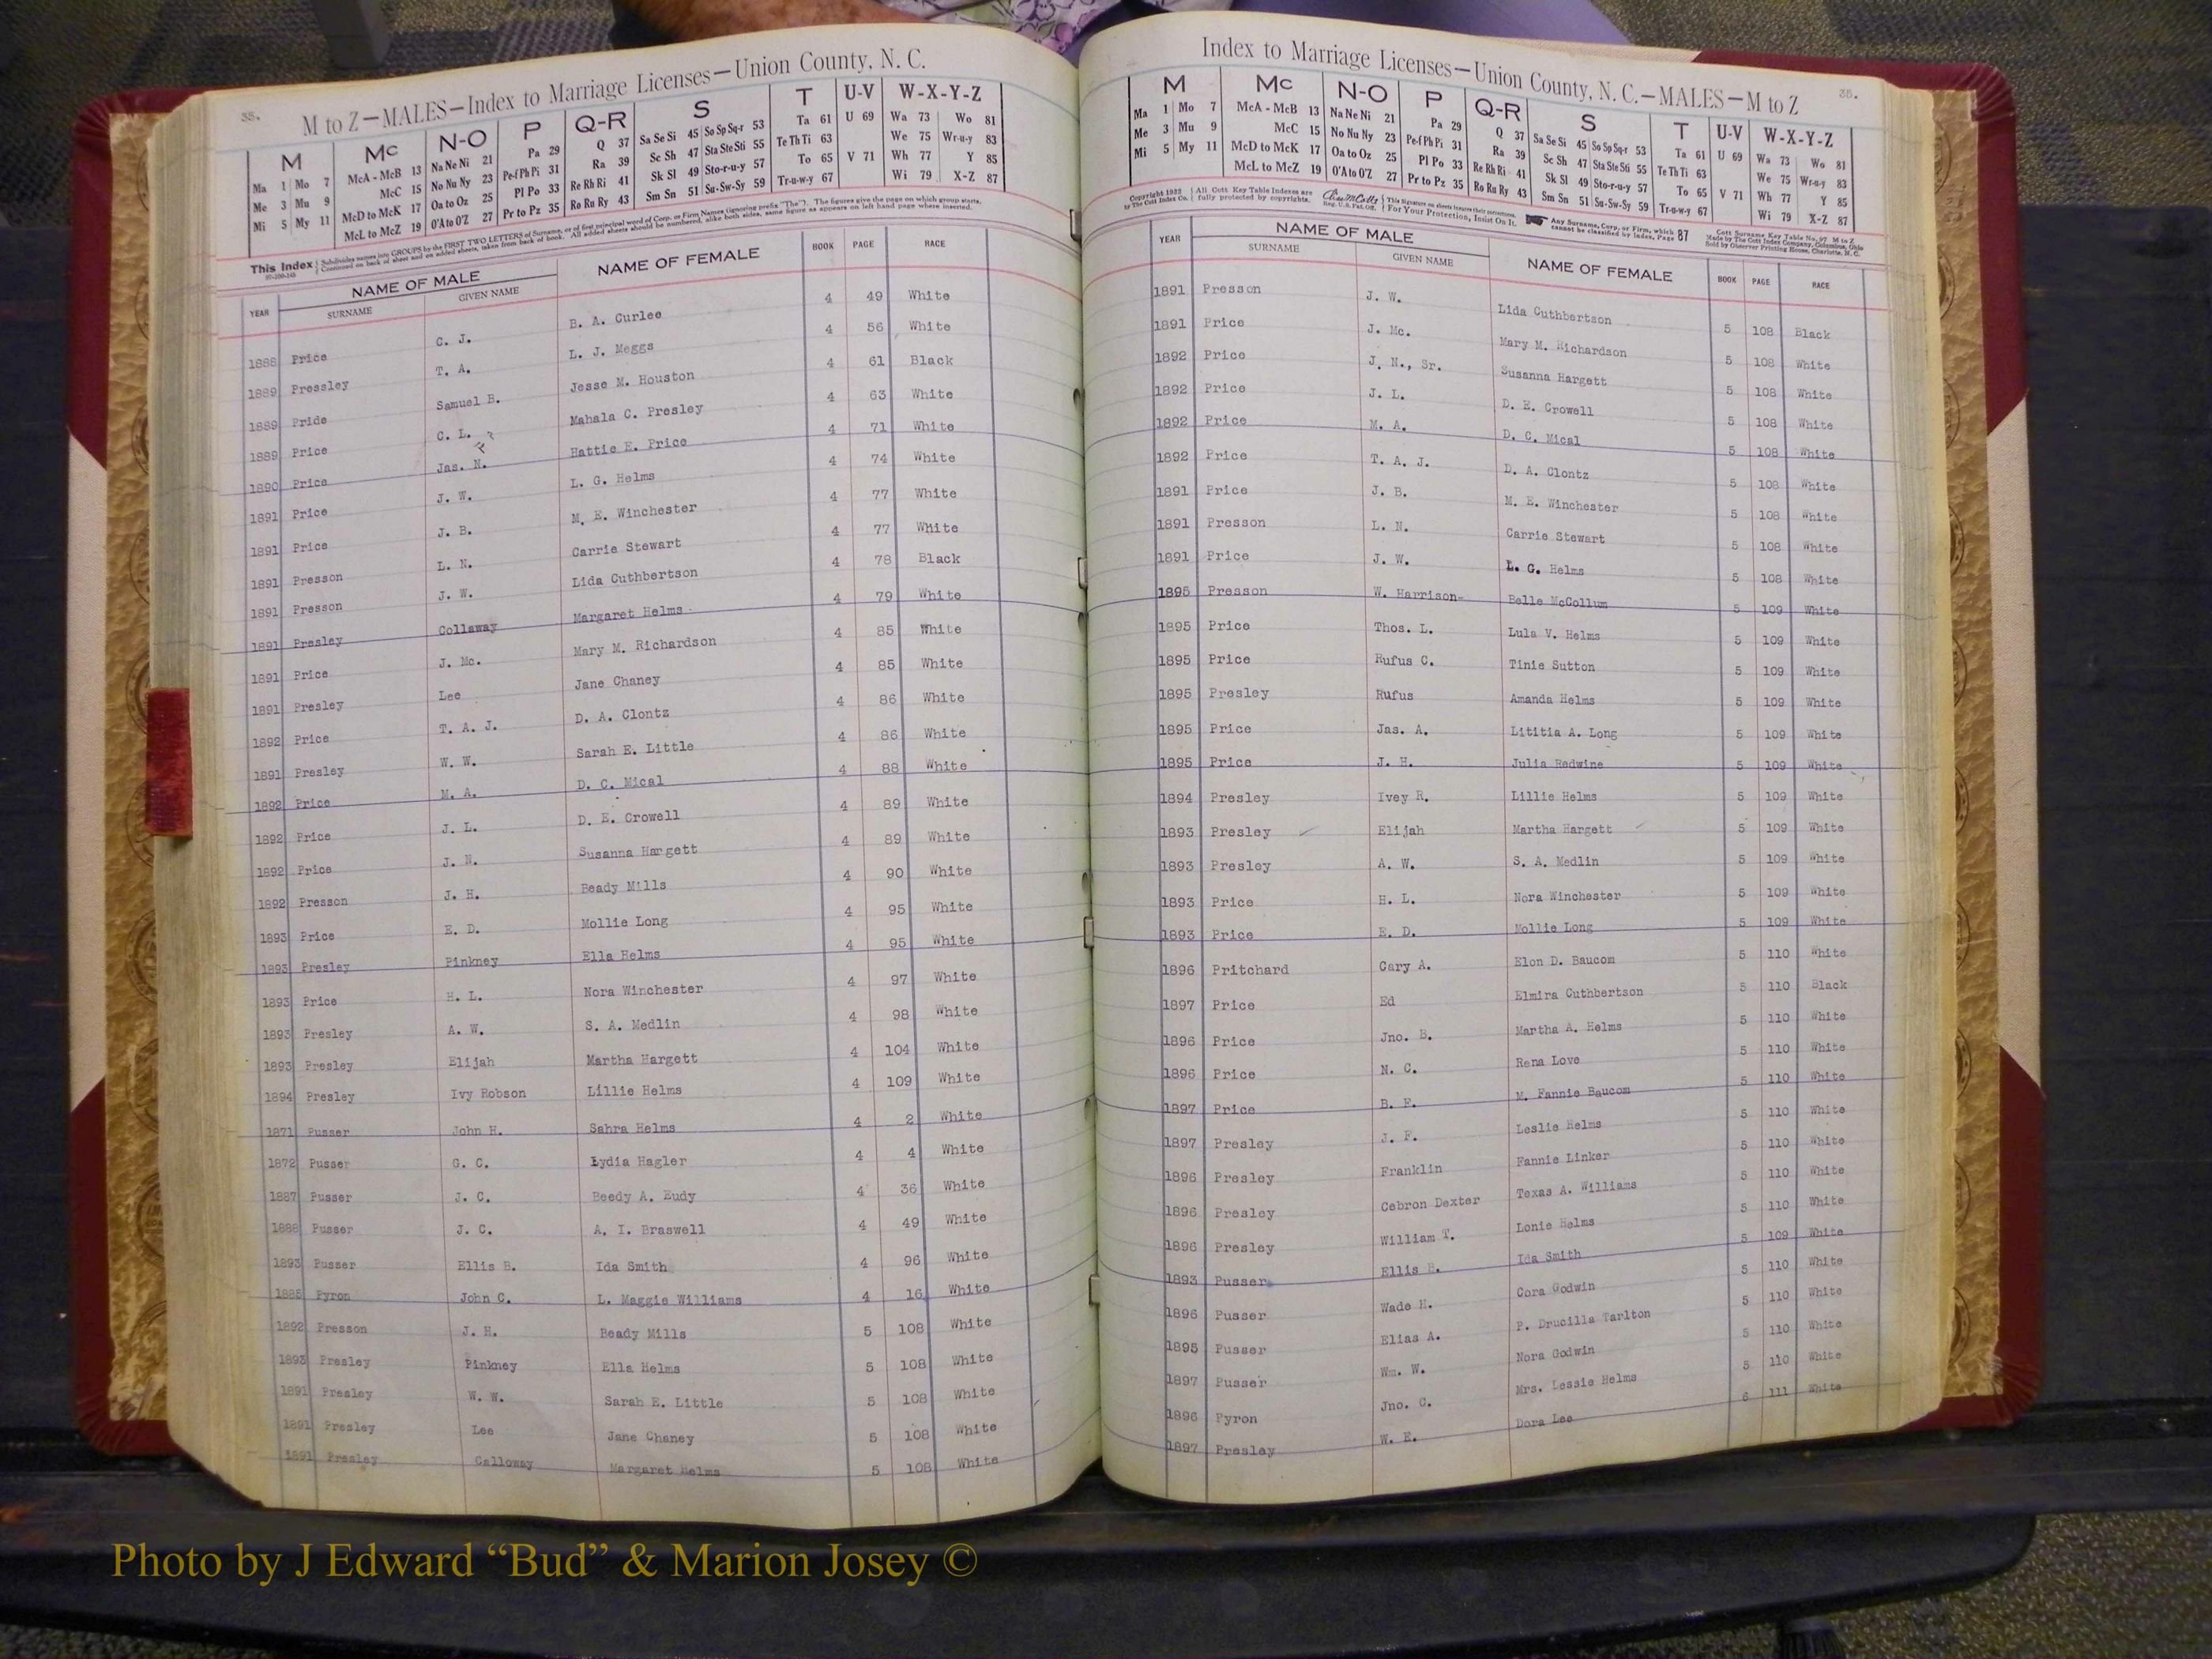 35.
M to Z—MALES—Index to Marriage Licenses—Union County, N. C.
M Mc N-O P Q-R S T U-V W-X-Y-Z
Ma 1 Mo 7 McA - McB 13 Na Ne Ni 21 Pa 29 Q 37 Sa Se Si 45 So Sp Sq-r 53 Ta 61 U 69 Wa 73 Wo 81
Me 3 Mu 9 McC 15 No Nu Ny 23 Pe-f Ph Pi 31 Ra 39 Sc Sh 47 Sta Ste Sti 55 Te Th Ti 63 We 75 Wr-u-y 83
Mi 5 My 11 McD to McK 17 Oa to Oz 25 Pl Po 33 Re Rh Ri 41 Sk Sl 49 Sto-r-u-y 57 To 65 V 71 Wh 77 Y 85
McL to McZ 19 O'A to O'Z 27 Pr to Pz 35 Ro Ru Ry 43 Sm Sn 51 Su-Sw-Sy 59 Tr-u-w-y 67 Wi 79 X-Z 87
This Index Subdivides names into GROUPS by the FIRST TWO LETTERS of Surname, or of first principal word of Corp. or Firm Names (ignoring prefix "The"). The figures give the page on which group starts.
Continued on back of sheet and on added sheets, taken from back of book. All added sheets should be numbered, alike both sides, same figure as appears on left hand page where inserted.
YEAR NAME OF MALE NAME OF FEMALE BOOK PAGE RACE
SURNAME GIVEN NAME
1888 Price C. J. B. A. Curlee 4 49 White
1889 Pressley T. A. L. J. Meggs 4 56 White
1889 Pride Samuel B. Jesse M. Houston 4 61 Black
1889 Price C. L. Mahala C. Presley 4 63 White
1890 Price Jas. N. Hattie E. Price 4 71 White
1891 Price J. W. L. G. Helms 4 74 White
1891 Price J. B. M. E. Winchester 4 77 White
1891 Presson L. N. Carrie Stewart 4 77 White
1891 Presson J. W. Lida Cuthbertson 4 78 Black
1891 Presley Collaway Margaret Helms 4 79 White
1891 Price J. Mc. Mary M. Richardson 4 85 White
1891 Presley Lee Jane Chaney 4 85 White
1892 Price T. A. J. D. A. Clontz 4 86 White
1891 Presley W. W. Sarah E. Little 4 86 White
1892 Price M. A. D. C. Mical 4 88 White
1892 Price J. L. D. E. Crowell 4 89 White
1892 Price J. N. Susanna Hargett 4 89 White
1892 Presson J. H. Beady Mills 4 90 White
1893 Price E. D. Mollie Long 4 95 White
1893 Presley Pinkney Ella Helms 4 95 White
1893 Price H. L. Nora Winchester 4 97 White
1893 Presley A. W. S. A. Medlin 4 98 White
1893 Presley Elijah Martha Hargett 4 104 White
1894 Presley Ivy Robson Lillie Helms 4 109 White
1871 Pusser John H. Sahra Helms 4 2 White
1872 Pusser G. C. Lydia Hagler 4 4 White
1887 Pusser J. C. Beedy A. Eudy 4 36 White
1888 Pusser J. C. A. I. Braswell 4 49 White
1893 Pusser Ellis B. Ida Smith 4 96 White
1885 Pyron John C. L. Maggie Williams 4 16 White
1892 Presson J. H. Beady Mills 5 108 White
1893 Presley Pinkney Ella Helms 5 108 White
1891 Presley W. W. Sarah E. Little 5 108 White
1891 Presley Lee Jane Chaney 5 108 White
1891 Presley Calloway Margaret Helms 5 108 White
Index to Marriage Licenses—Union County, N. C.—MALES—M to Z
35.
M Mc N-O P Q-R S T U-V W-X-Y-Z
Ma 1 Mo 7 McA - McB 13 Na Ne Ni 21 Pa 29 Q 37 Sa Se Si 45 So Sp Sq-r 53 Ta 61 U 69 Wa 73 Wo 81
Me 3 Mu 9 McC 15 No Nu Ny 23 Pe-f Ph Pi 31 Ra 39 Sc Sh 47 Sta Ste Sti 55 Te Th Ti 63 We 75 Wr-u-y 83
Mi 5 My 11 McD to McK 17 Oa to Oz 25 Pl Po 33 Re Rh Ri 41 Sk Sl 49 Sto-r-u-y 57 To 65 V 71 Wh 77 Y 85
McL to McZ 19 O'A to O'Z 27 Pr to Pz 35 Ro Ru Ry 43 Sm Sn 51 Su-Sw-Sy 59 Tr-u-w-y 67 Wi 79 X-Z 87
Copyright 1932 All Cott Key Table Indexes are This Signature on sheets insures their correctness. Any Surname, Corp. or Firm, which Cott Surname Key Table No. 97 M to Z
by The Cott Index Co. fully protected by copyrights. Reg. U.S. Pat. Off. For Your Protection, Insist On It. cannot be classified by Index, Page 87 Made by The Cott Index Company, Columbus, Ohio
Sold by Observer Printing House, Charlotte, N. C.
YEAR NAME OF MALE NAME OF FEMALE BOOK PAGE RACE
SURNAME GIVEN NAME
1891 Presson J. W. Lida Cuthbertson 5 108 Black
1891 Price J. Mc. Mary M. Richardson 5 108 White
1892 Price J. N., Sr. Susanna Hargett 5 108 White
1892 Price J. L. D. E. Crowell 5 108 White
1892 Price M. A. D. C. Mical 5 108 White
1892 Price T. A. J. D. A. Clontz 5 108 White
1891 Price J. B. M. E. Winchester 5 108 White
1891 Presson L. N. Carrie Stewart 5 108 White
1891 Price J. W. L. G. Helms 5 108 White
1895 Presson W. Harrison- Belle McCollum 5 109 White
1895 Price Thos. L. Lula V. Helms 5 109 White
1895 Price Rufus C. Tinie Sutton 5 109 White
1895 Presley Rufus Amanda Helms 5 109 White
1895 Price Jas. A. Lititia A. Long 5 109 White
1895 Price J. H. Julia Redwine 5 109 White
1894 Presley Ivey R. Lillie Helms 5 109 White
1893 Presley Elijah Martha Hargett 5 109 White
1893 Presley A. W. S. A. Medlin 5 109 White
1893 Price H. L. Nora Winchester 5 109 White
1893 Price E. D. Mollie Long 5 109 White
1896 Pritchard Cary A. Elon D. Baucom 5 110 White
1897 Price Ed Elmira Cuthbertson 5 110 Black
1896 Price Jno. B. Martha A. Helms 5 110 White
1896 Price N. C. Rena Love 5 110 White
1897 Price B. F. M. Fannie Baucom 5 110 White
1897 Presley J. F. Leslie Helms 5 110 White
1896 Presley Franklin Fannie Linker 5 110 White
1896 Presley Cebron Dexter Texas A. Williams 5 110 White
1896 Presley William T. Lonie Helms 5 110 White
1893 Pusser Ellis B. Ida Smith 5 109 White
1896 Pusser Wade H. Cora Godwin 5 110 White
1895 Pusser Elias A. P. Drucilla Tarlton 5 110 White
1897 Pusser Wm. W. Nora Godwin 5 110 White
1896 Pyron Jno. C. Mrs. Lessie Helms 5 110 White
1897 Presley W. E. Dora Lee 6 111 White
Photo by J Edward “Bud” & Marion Josey ©